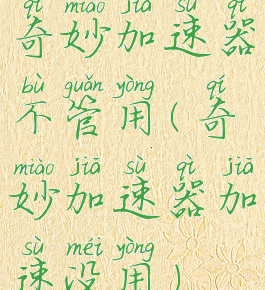 qí miào jiā sù qì
奇妙加速器
bù guǎn yòng qí
不管用(奇
miào jiā sù qì jiā
妙加速器加
sù méi yòng
速没用)